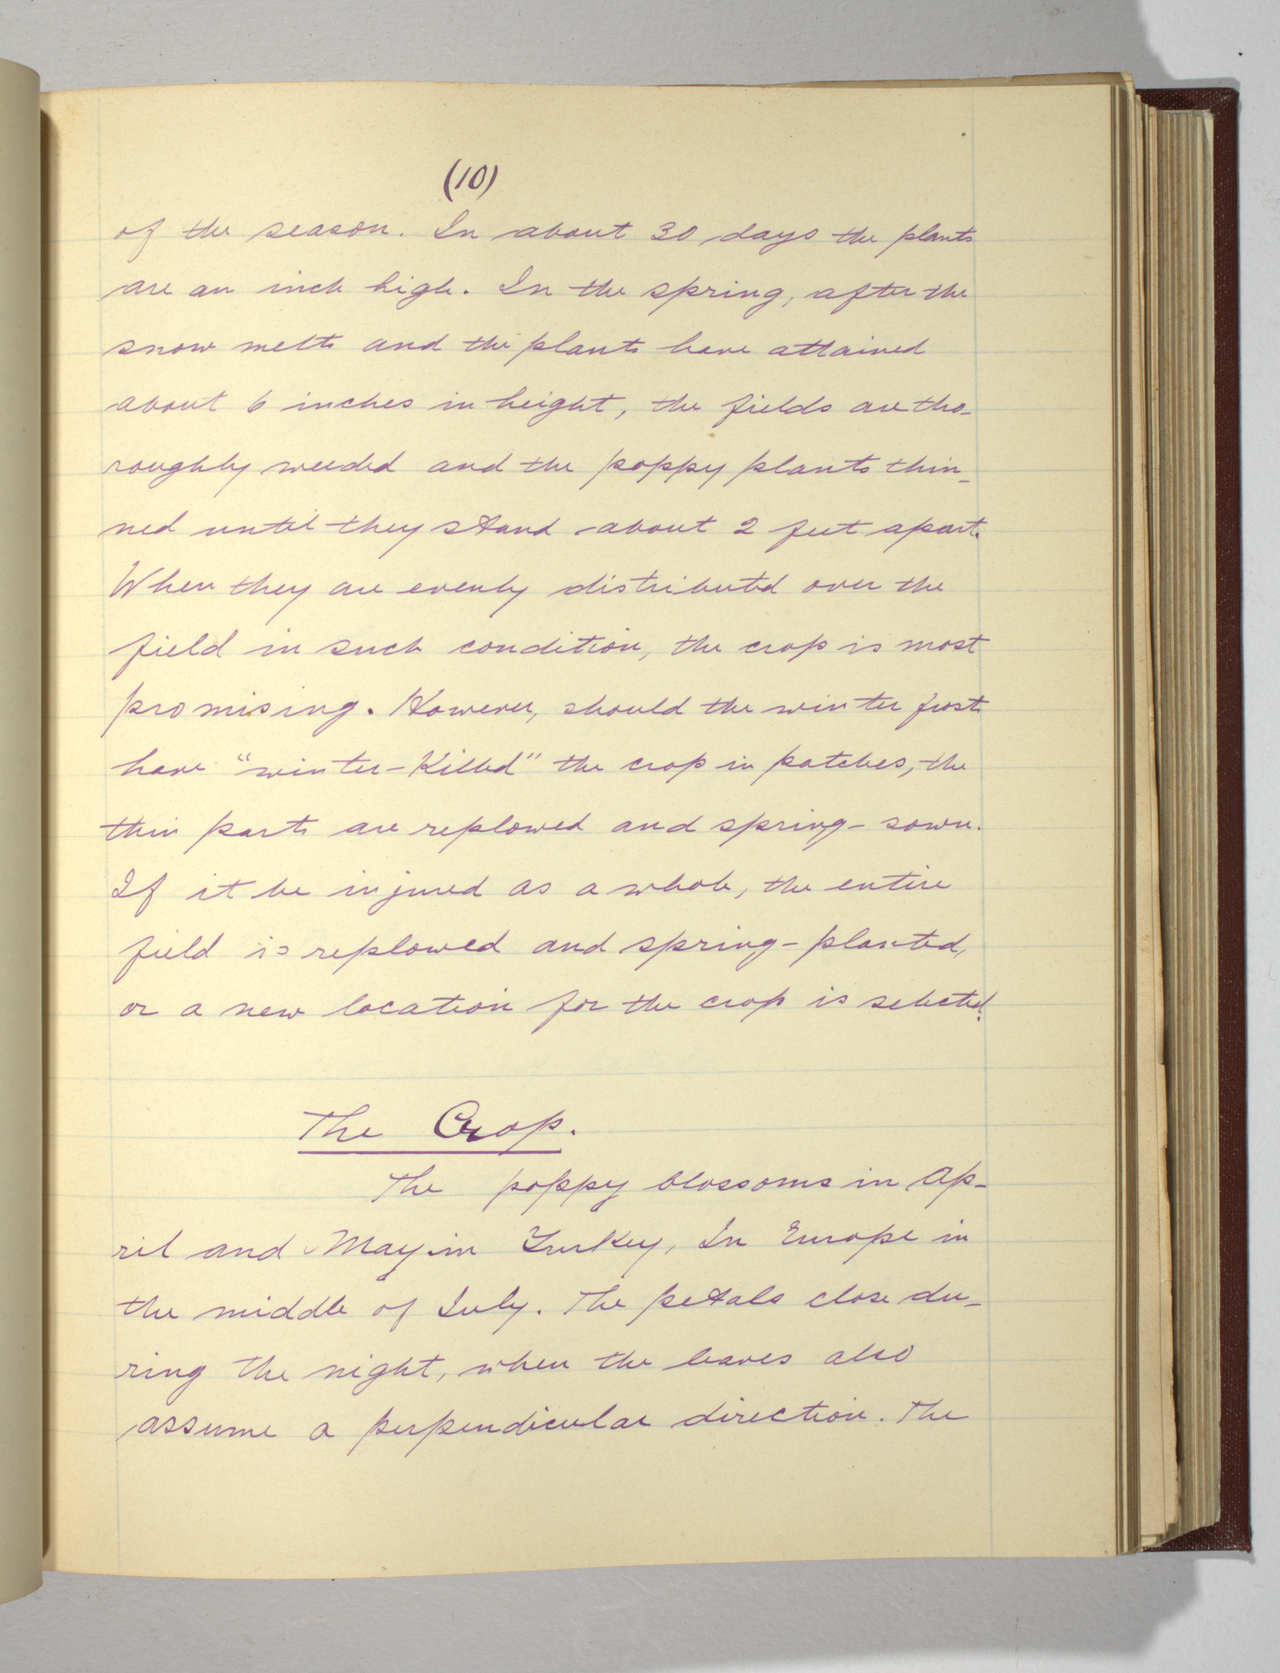 (10)
of the season. In about 30 days the plants
are an inch high. In the spring, after the
snow melts and the plants have attained
about 6 inches in height, the fields are tho-
roughly weeded and the poppy plants thin-
ned until they stand about 2 feet apart.
When they are evenly distributed over the
field in such condition, the crop is most
promising. However, should the winter frost
have "winter-Killed" the crop in patches, the
thin parts are replowed and spring-sown.
If it be injured as a whole, the entire
field is replowed and spring-planted,
or a new location for the crop is selected.
The Crop.
The poppy blossoms in Ap-
ril and May in Turkey, In Europe in
the middle of July. The petals close du-
ring the night, when the leaves also
assume a perpendicular direction. The